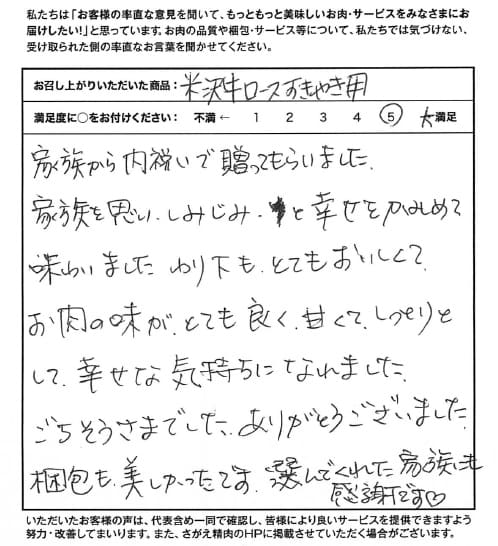 私たちは「お客様の率直な意見を聞いて、もっともっと美味しいお肉・サービスをみなさまにお
届けしたい!」と思っています。お肉の品質や梱包・サービス等について、私たちでは気づけない、
受け取られた側の率直なお言葉を聞かせてください。
お召し上がりいただいた商品： 米沢牛ロースすきやき用
満足度に○をお付けください： 不満 ← 1 2 3 4 5 大満足
家族から内祝いで贈ってもらいました。
家族を思い、しみじみ・と幸せをかみしめて
味わいました わり下も、とてもおいしくて、
お肉の味が、とても良く、甘くて、しっとりと
して、幸せな気持ちになれました。
ごちそうさまでした。ありがとうございました。
梱包も、美しかったです。選んでくれた家族にも
感謝です♡
いただいたお客様の声は、代表含め一同で確認し、皆様により良いサービスを提供できますよう
努力・改善してまいります。また、さがえ精肉のHPに掲載させていただく場合がございます。